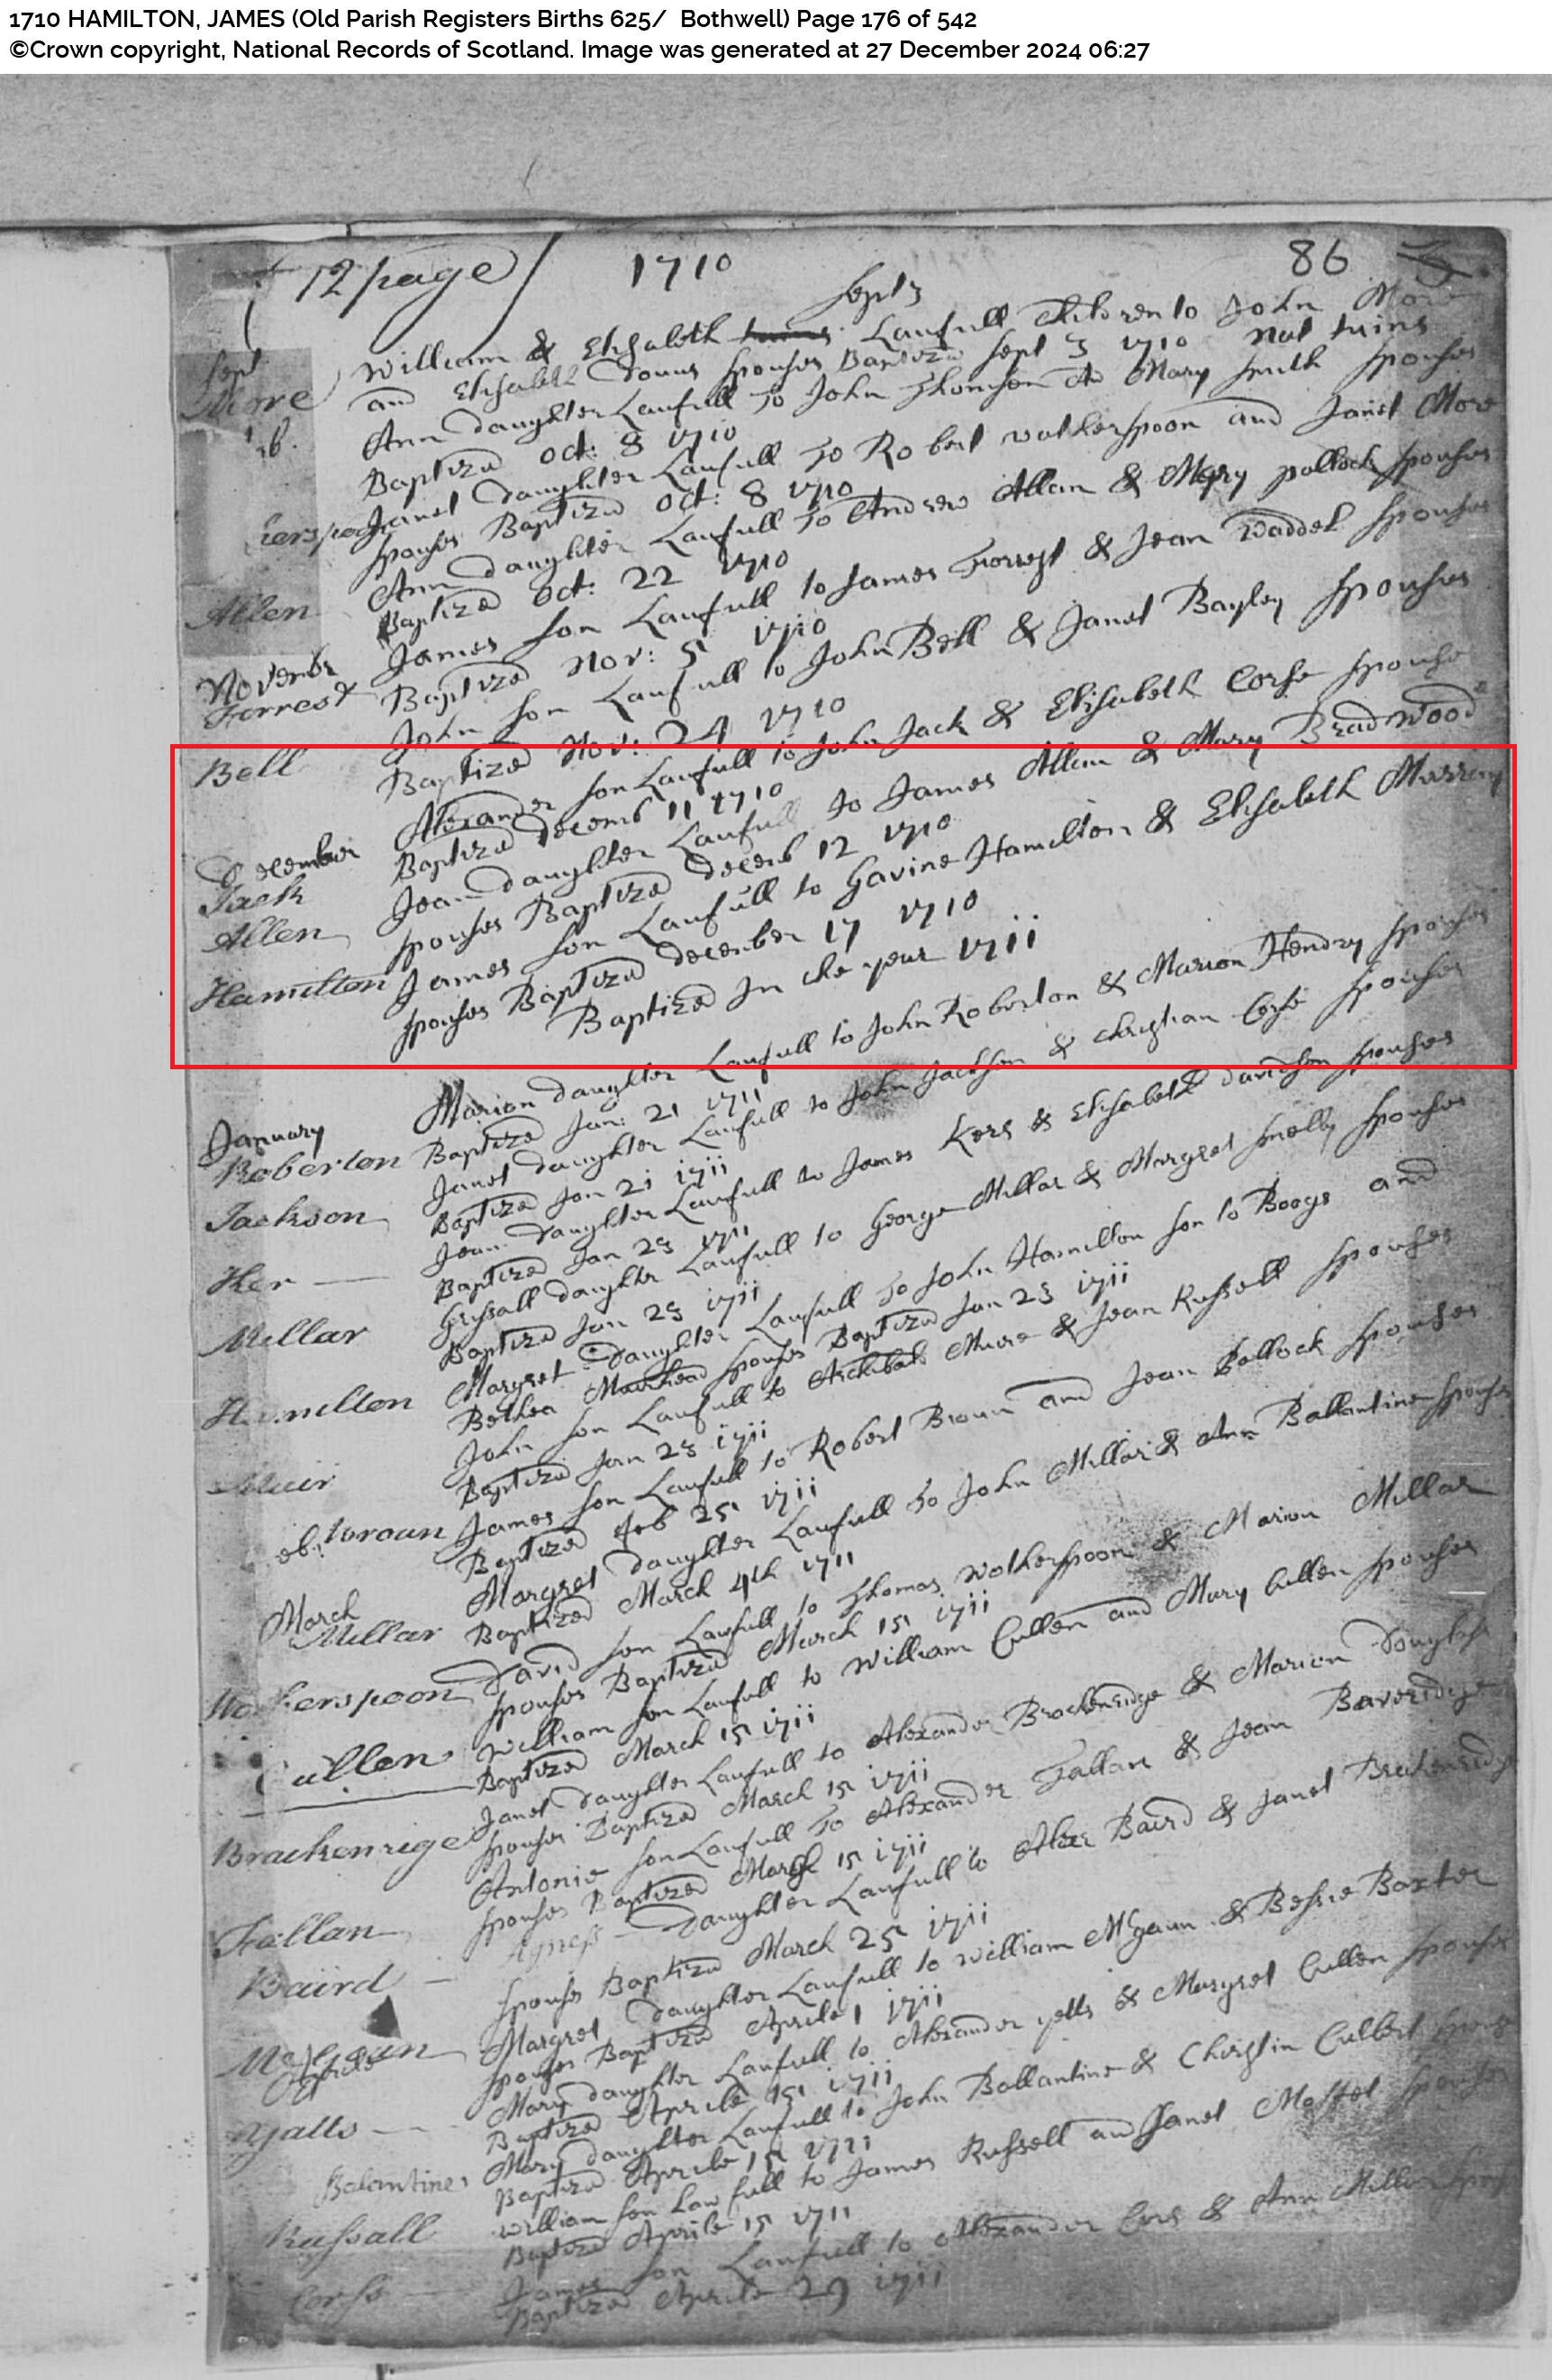 1710 HAMILTON, JAMES (Old Parish Registers Births 625/ Bothwell) Page 176 of 542
©Crown copyright, National Records of Scotland. Image was generated at 27 December 2024 06:27
12 page 1710 86
Sept 3
Sept William & Elisabeth Laufull Children to John More
More and Elisabeth spouses Baptized Sept 3 1710 Not twins
Ann daughter Laufull to John Thomson And Mary Smith spouses
Baptized oct: 8 1710
Janet daughter Laufull to Robert watherspoon and Janet More
spouses Baptized oct: 8 1710
Ann daughter Laufull to Andrew Allan & Mary pollock spouses
Allen Baptized oct: 22 1710
November James son Laufull to James Forrest & Jean Waddel spouses
Forrest Baptized Nov: 5 1710
John son Laufull to John Bell & Janet Bayley spouses
Bell Baptized Nov: 24 1710
December Alexander son Laufull to John Jack & Elisabeth Corse spouse
Jack Baptized decemb 11 1710
Allen Jean daughter Laufull to James Allan & Mary Braidwood
spouses Baptized decemb 12 1710
Hamilton James son Laufull to Gavine Hamilton & Elisabeth Murray
spouses Baptized december 17 1710
Baptized In the year 1711
January Marion daughter Laufull to John Roberton & Marion Hendry spouses
Roberton Baptized Jan: 21 1711
Jackson Janet daughter Laufull to John Jackson & Christian Corse spouses
Baptized Jan 21 1711
Ker Jean daughter Laufull to James Kers & Elisabeth davidson spouses
Baptized Jan 23 1711
Millar Grissall daughter Laufull to George Millar & Margret Smelly spouses
Baptized Jan 23 1711
Hamilton Margret daughter Laufull to John Hamilton son to Boogs and
Bethea Muirhead spouses Baptized Jan 23 1711
Muir John son Laufull to Archibald Muire & Jean Russell spouses
Baptized Jan 23 1711
broun James son Laufull to Robert Broun and Jean Pollock spouses
Baptized feb 25 1711
March Margret daughter Laufull to John Millar & Ann Ballantine spouses
Millar Baptized March 4th 1711
Wotherspoon David son Laufull to Thomas Wotherspoon & Marion Millar
spouses Baptized March 15 1711
Cullen William son Laufull to William Cullen and Mary Cullen spouses
Baptized March 15 1711
Brackenrige Janet daughter Laufull to Alexander Brackenridge & Marion Douglass
spouses Baptized March 15 1711
Fallan Antonie son Laufull to Alexander Fallan & Jean Baveridge
spouses Baptized March 15 1711
Baird Agness daughter Laufull to Alexr Baird & Janet Brackenridge
spouses Baptized March 25 1711
McGaun Margret daughter Laufull to William McGaun & Bessie Baxter
Aprile spouses Baptized Aprile 1 1711
yatts Mary daughter Laufull to Alexander yetts & Margret Cullen spouses
Baptized Aprile 15 1711
Balantine Mary daughter Laufull to John Ballantine & Christin Culbert spouses
Baptized Aprile 15 1711
Russall William son Lawfull to James Russell and Janet Moffet spouses
Baptized Aprile 15 1711
Corse James son Laufull to Alexander Cors & Ann Millar
Baptized Aprile 29 1711